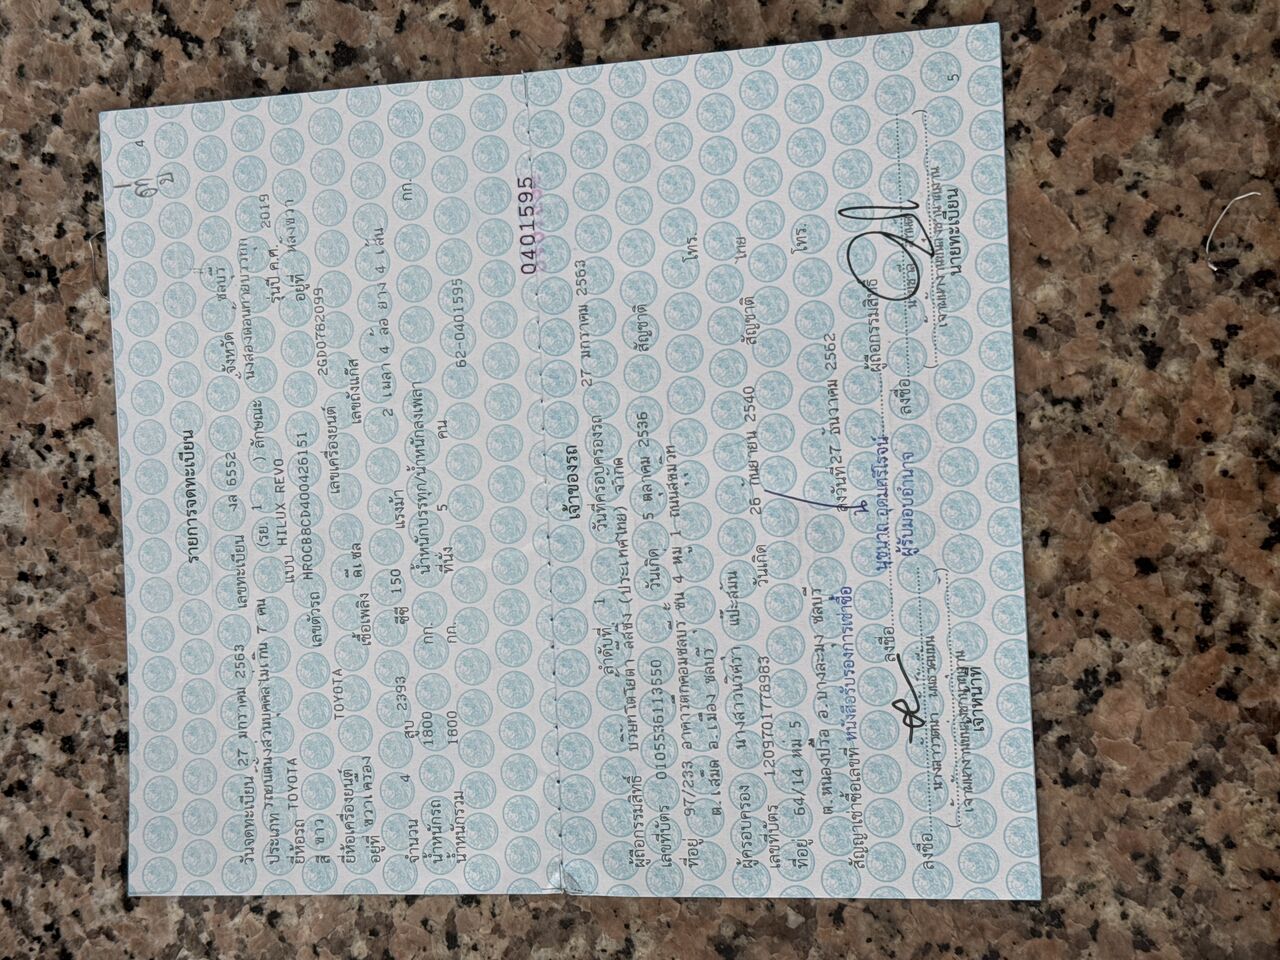 4
รายการจดทะเบียน
วันจดทะเบียน 27 มกราคม 2563 เลขทะเบียน งล 6552 จังหวัด ชลบุรี
ประเภท รถยนต์นั่งส่วนบุคคลไม่เกิน 7 คน (รย. 1 ) ลักษณะ นั่งสองตอนท้ายบรรทุก
ยี่ห้อรถ TOYOTA แบบ HILUX REVO รุ่นปี ค.ศ. 2019
สี ขาว เลขตัวรถ MR0CB8CD400426151 อยู่ที่ หลังขวา
ยี่ห้อเครื่องยนต์ TOYOTA เลขเครื่องยนต์ 2GD0762099
อยู่ที่ ขวาเครื่อง เชื้อเพลิง ดีเซล เลขถังแก๊ส
จำนวน 4 สูบ 2393 ซีซี 150 แรงม้า 2 เพลา 4 ล้อ ยาง 4 เส้น
น้ำหนักรถ 1800 กก. น้ำหนักบรรทุก/น้ำหนักลงเพลา กก.
น้ำหนักรวม 1800 กก. ที่นั่ง 5 คน 62-0401595
0401595
เจ้าของรถ
ลำดับที่ 1 วันที่ครอบครองรถ 27 มกราคม 2563
ผู้ถือกรรมสิทธิ์ บริษัทโตโยต้า ลีสซิ่ง (ประเทศไทย) จำกัด
เลขที่บัตร 0105536113550 วันเกิด 5 ตุลาคม 2536 สัญชาติ
ที่อยู่ 97/233 อาคารตึกคอมชลบุรี ชั้น 4 หมู่ 1 ถนนสุขุมวิท
ต.เสม็ด อ.เมือง ชลบุรี โทร.
ผู้ครอบครอง นางสาววนิศรา แป๊ะสมัน
เลขที่บัตร 1209701778983 วันเกิด 26 กันยายน 2540 สัญชาติ ไทย
ที่อยู่ 64/14 หมู่ 5
ต.หนองปรือ อ.บางละมุง ชลบุรี โทร.
สัญญาเช่าซื้อเลขที่ หนังสือรับรองการเช่าซื้อ ลงวันที่ 27 ธันวาคม 2562
ลงชื่อ ผู้ถือกรรมสิทธิ์
ผู้รับมอบอำนาจ
ลงชื่อ ลงชื่อ
เจ้าหน้าที่ นายทะเบียน
5